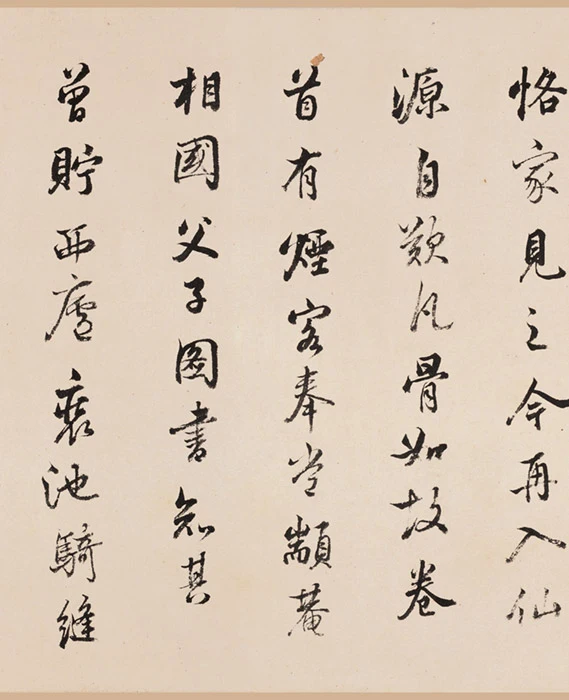 恪家見之今再入仙
源自歎凡骨如故卷
首有煙客奉常顓菴
相國父子圖書知其
曾貯西廬裹池騎縫